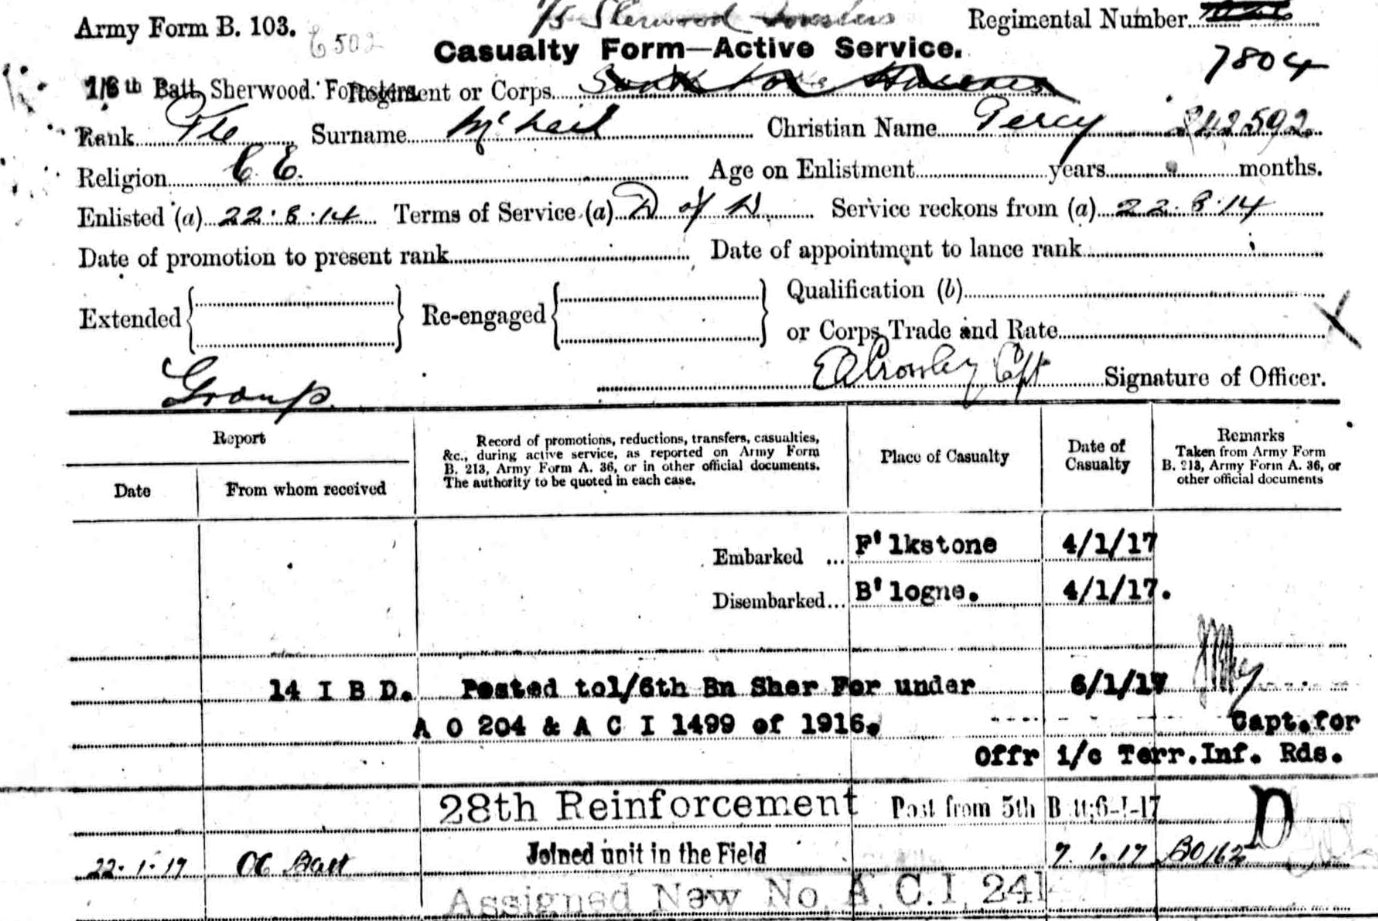 Army Form B. 103.
6502
1/5 Sherwood Foresters
Regimental Number
7804
Casualty Form—Active Service.
1/6th Batt. Sherwood Foresters
Regiment or Corps
Rank Pte Surname McNeil Christian Name Percy 242592
Religion C. E. Age on Enlistment years months.
Enlisted (a) 22.8.14 Terms of Service (a) D of W. Service reckons from (a) 22.8.14
Date of promotion to present rank Date of appointment to lance rank
Extended Re-engaged Qualification (b)
or Corps Trade and Rate
Group Capt Signature of Officer.
Report
Date
From whom received
Record of promotions, reductions, transfers, casualties,
&c., during active service, as reported on Army Form
B. 213, Army Form A. 36, or in other official documents.
The authority to be quoted in each case.
Place of Casualty
Date of
Casualty
Remarks
Taken from Army Form
B. 213, Army Form A. 36, or
other official documents
Embarked ... F'lkstone 4/1/17
Disembarked... B'logne. 4/1/17.
14 I B D. Posted to1/6th Bn Sher For under 6/1/17
A O 204 & A C I 1499 of 1916. Capt.for
Offr i/c Terr.Inf. Rds.
28th Reinforcement Post from 5th B 6-1-17 D
22.1.17 OC Batt Joined unit in the Field 7.1.17 BO162
Assigned New No. A.C.I. 241